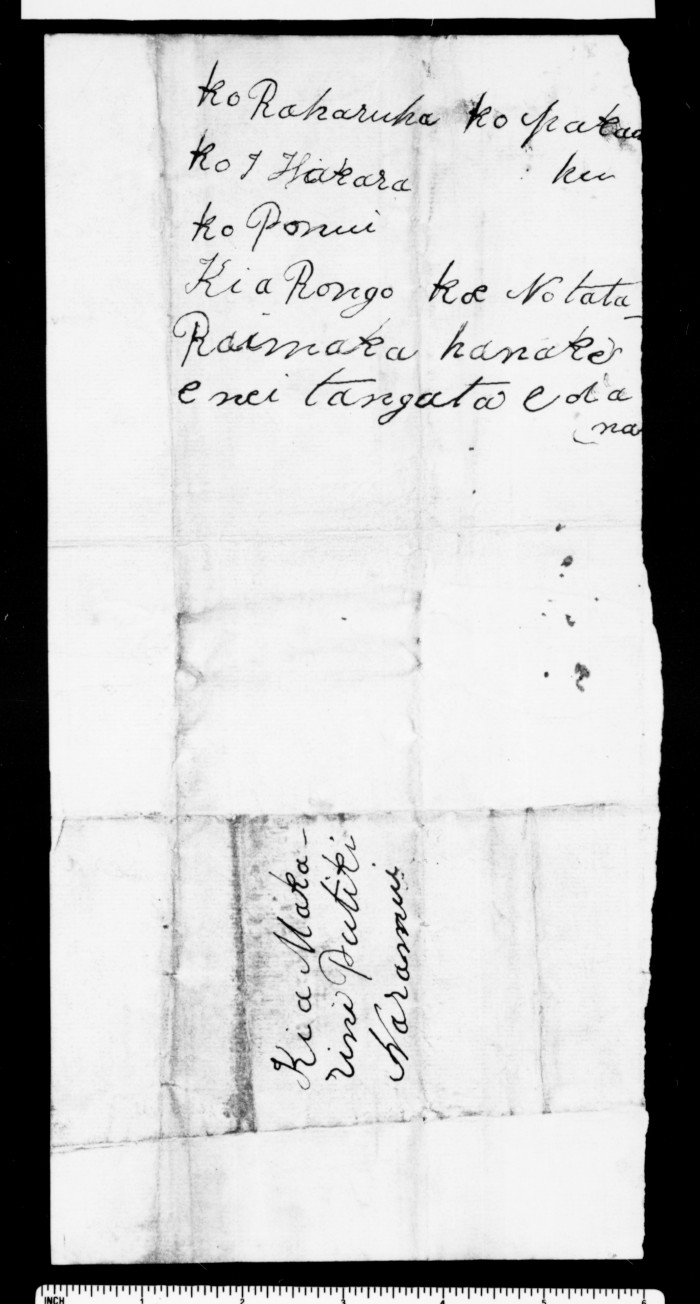 ko Raharuha ko
ko I Hakara ku
ko Ponui
Ki a Rongo koe No tata_
Raimaka hanake
e nei tangata e dia
na
Ki a Maka-
rini Putiki
Naramui
INCH 1 2 3 4 5 6